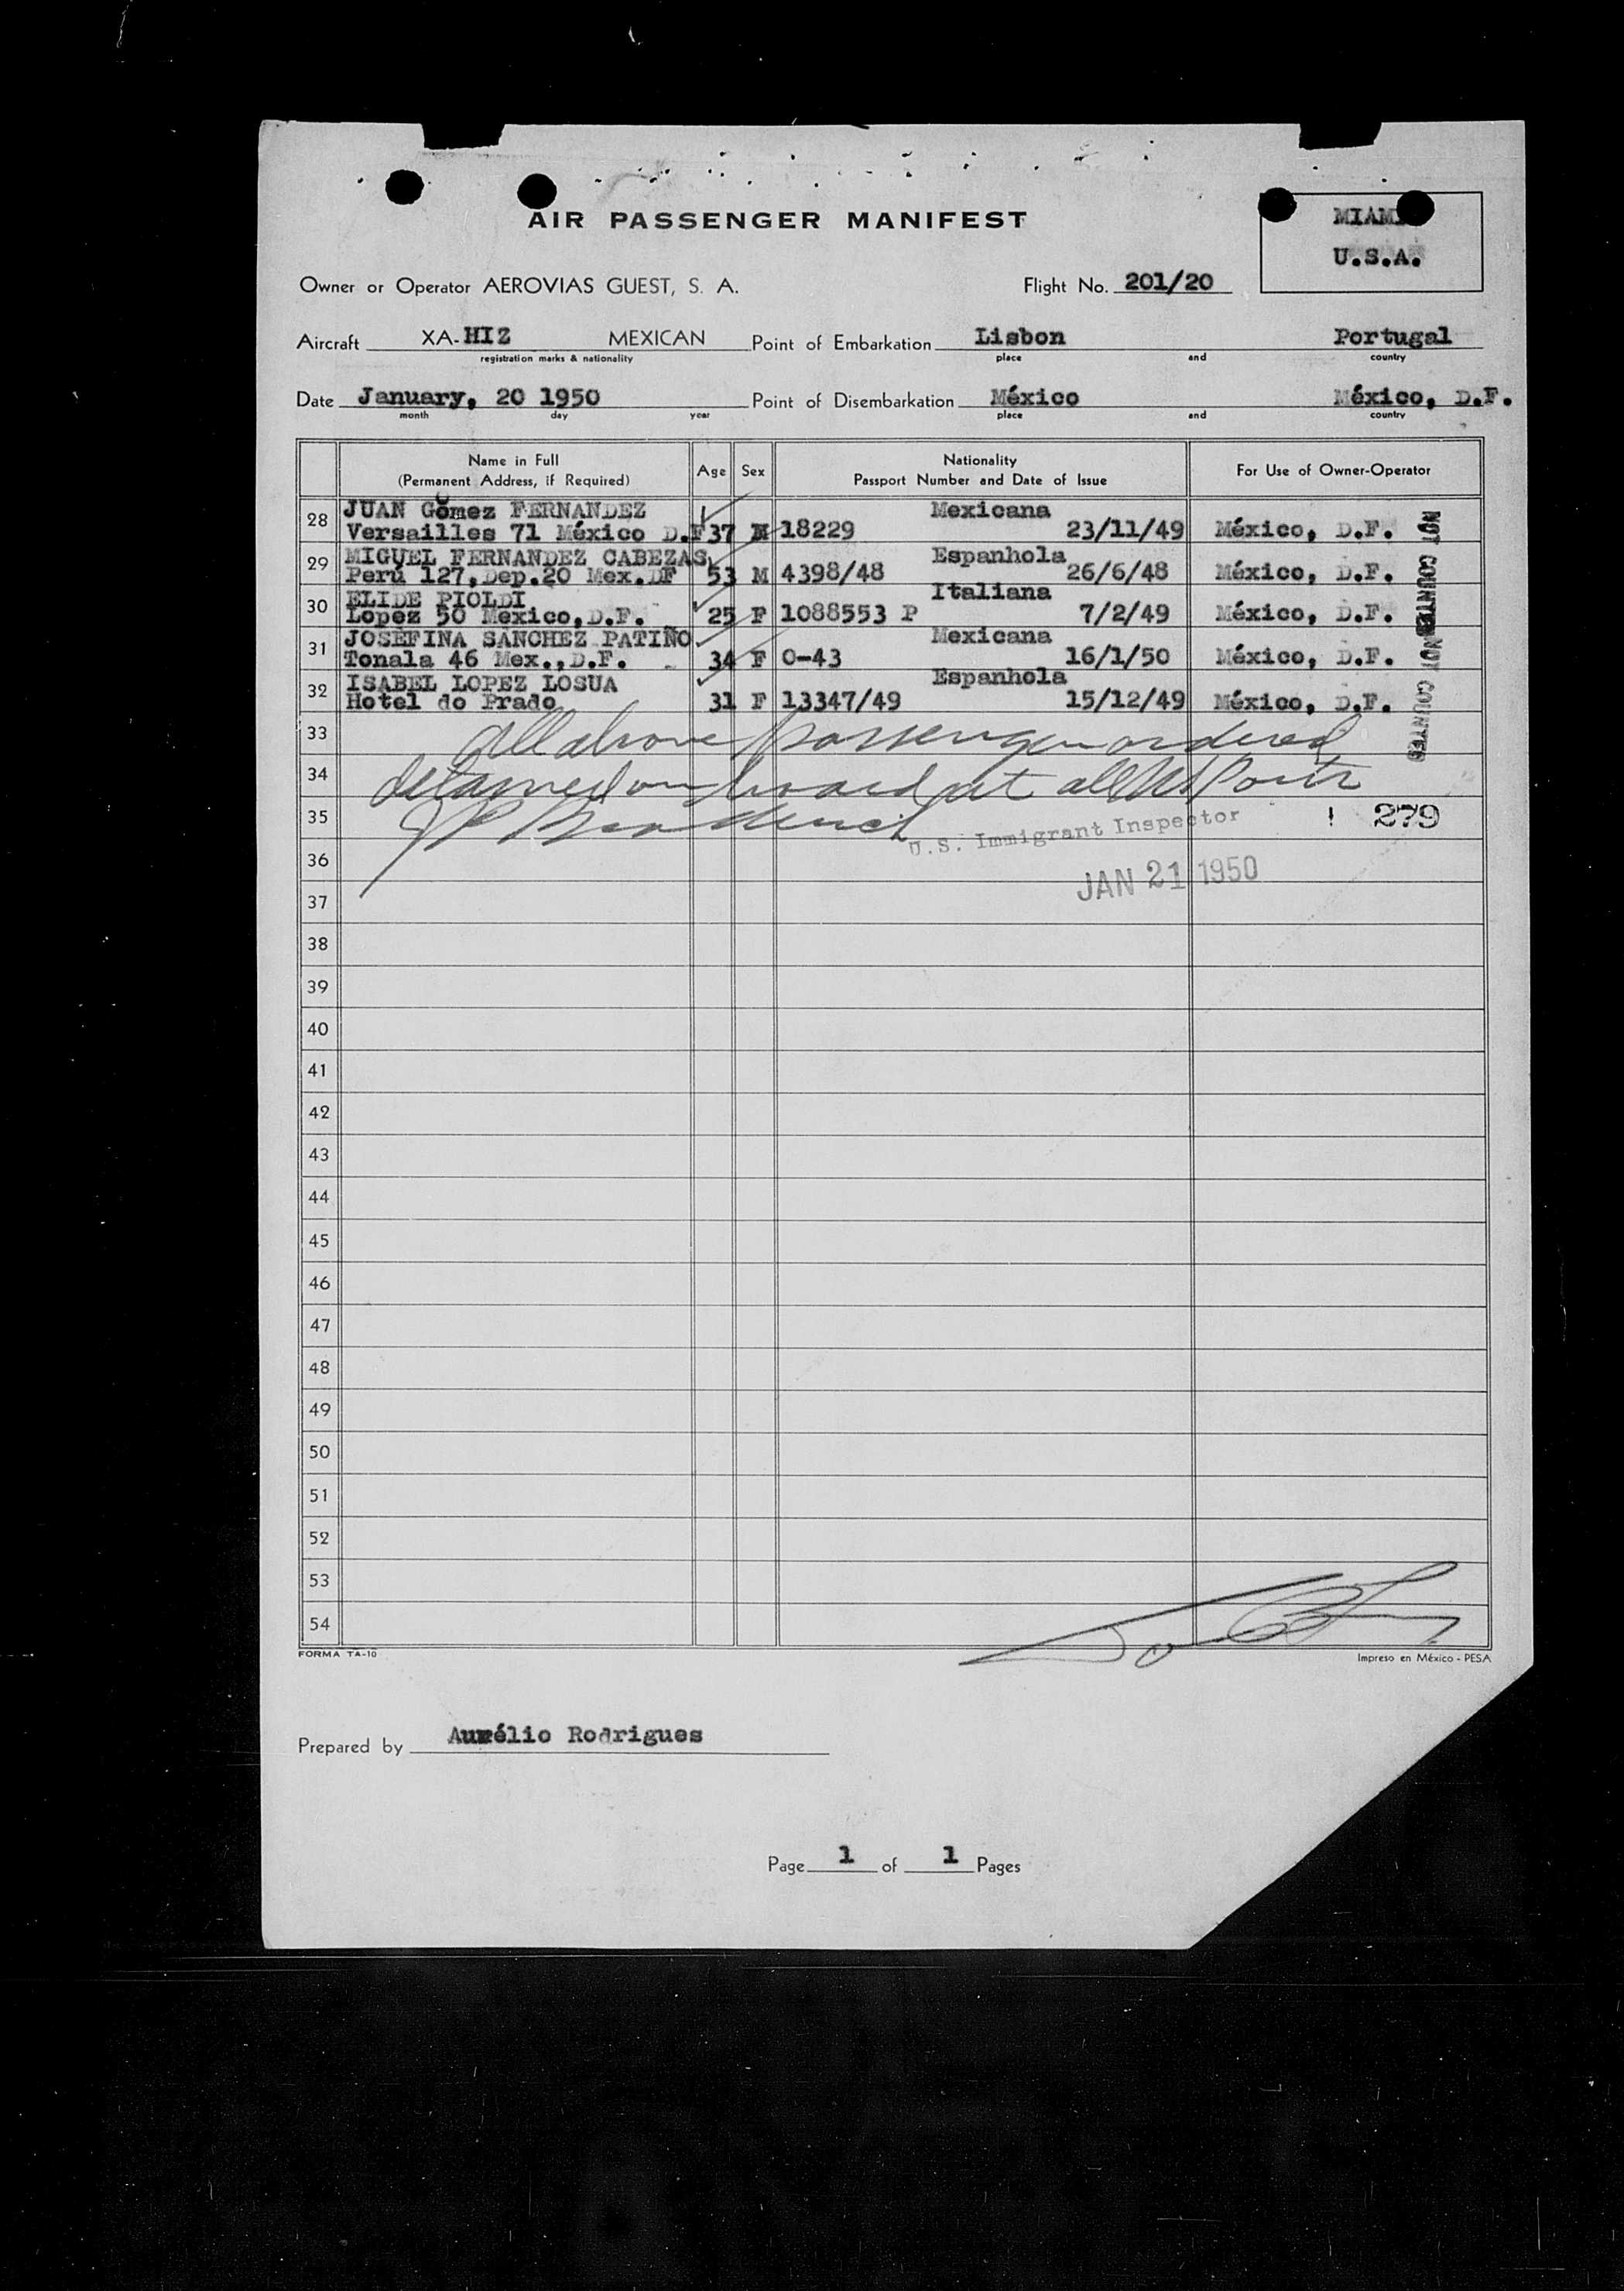 AIR PASSENGER MANIFEST
U.S.A.
Owner or Operator AEROVIAS GUEST, S. A.
Flight No. 201/20
Aircraft XA-HIZ MEXICAN Point of Embarkation Lisbon Portugal
registration marks & nationality place and country
Date January, 20 1950 Point of Disembarkation México México, D.F.
month day year place and country
Name in Full
(Permanent Address, if Required)
Age Sex
Nationality
Passport Number and Date of Issue
For Use of Owner-Operator
28 JUAN Gómez FERNANDEZ Mexicana
Versailles 71 México D.F 37 M 18229 23/11/49 México, D.F.
29 MIGUEL FERNANDEZ CABEZAS Espanhola
Perú 127, Dep.20 Mex.DF 53 M 4398/48 26/6/48 México, D.F.
30 ELIDE PIOLDI Italiana
Lopez 50 Mexico,D.F. 25 F 1088553 P 7/2/49 México, D.F.
31 JOSEFINA SANCHEZ PATIÑO Mexicana
Tonala 46 Mex.,D.F. 34 F 0-43 16/1/50 México, D.F.
32 ISABEL LOPEZ LOSUA Espanhola
Hotel do Prado 31 F 13347/49 15/12/49 México, D.F.
NOT COUNTED NOT COUNTED
33 All above passengers ordered
34 detained on board at all US Ports
35
U.S. Immigrant Inspector
279
36
JAN 21 1950
37
38
39
40
41
42
43
44
45
46
47
48
49
50
51
52
53
54
FORMA TA-10
Impreso en México - PESA
Prepared by Aurélio Rodrigues
Page 1 of 1 Pages